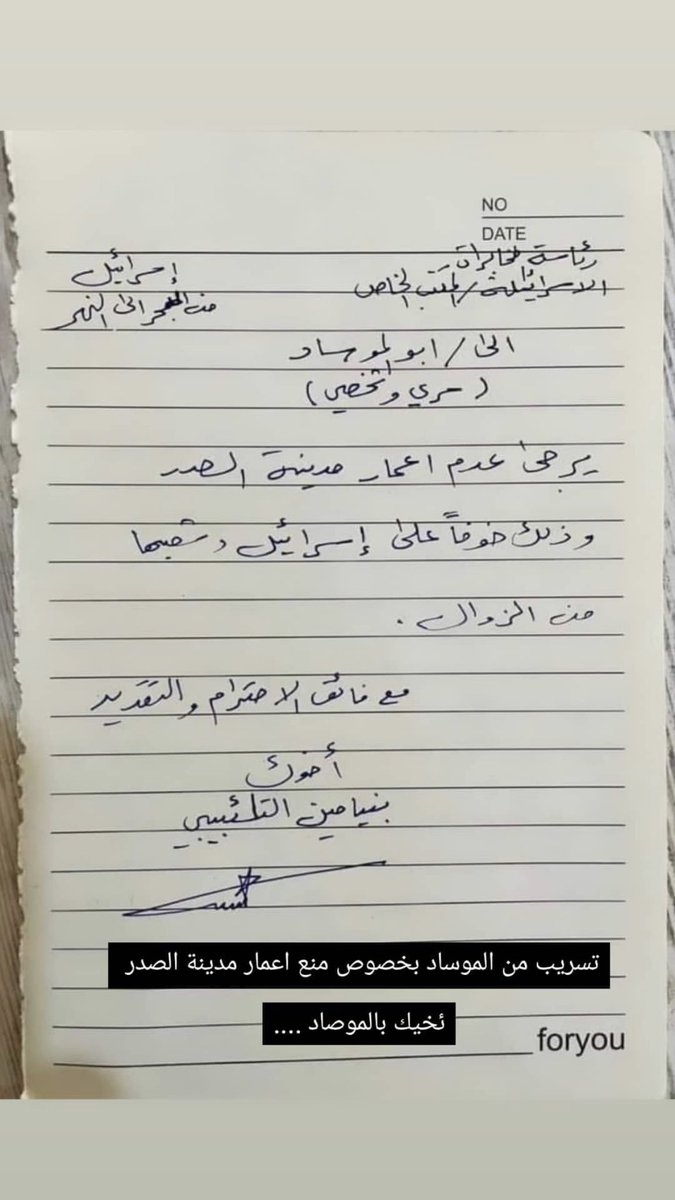 NO
DATE
رئاسة مخابرات
الاسرائيلية/المكتب الخاص
إسرائيل
من البحر الى النهر
الى/ابو لموساد
(سري وشخصي)
يرجى عدم اعمار مدينة الصدر
وذلك خوفاً على إسرائيل وشعبها
من الزوال.
مع فائق الاحترام والتقدير
أخوك
بنيامين التلئبيبي
تسريب من الموساد بخصوص منع اعمار مدينة الصدر
ئخيك بالموصاد ....
foryou